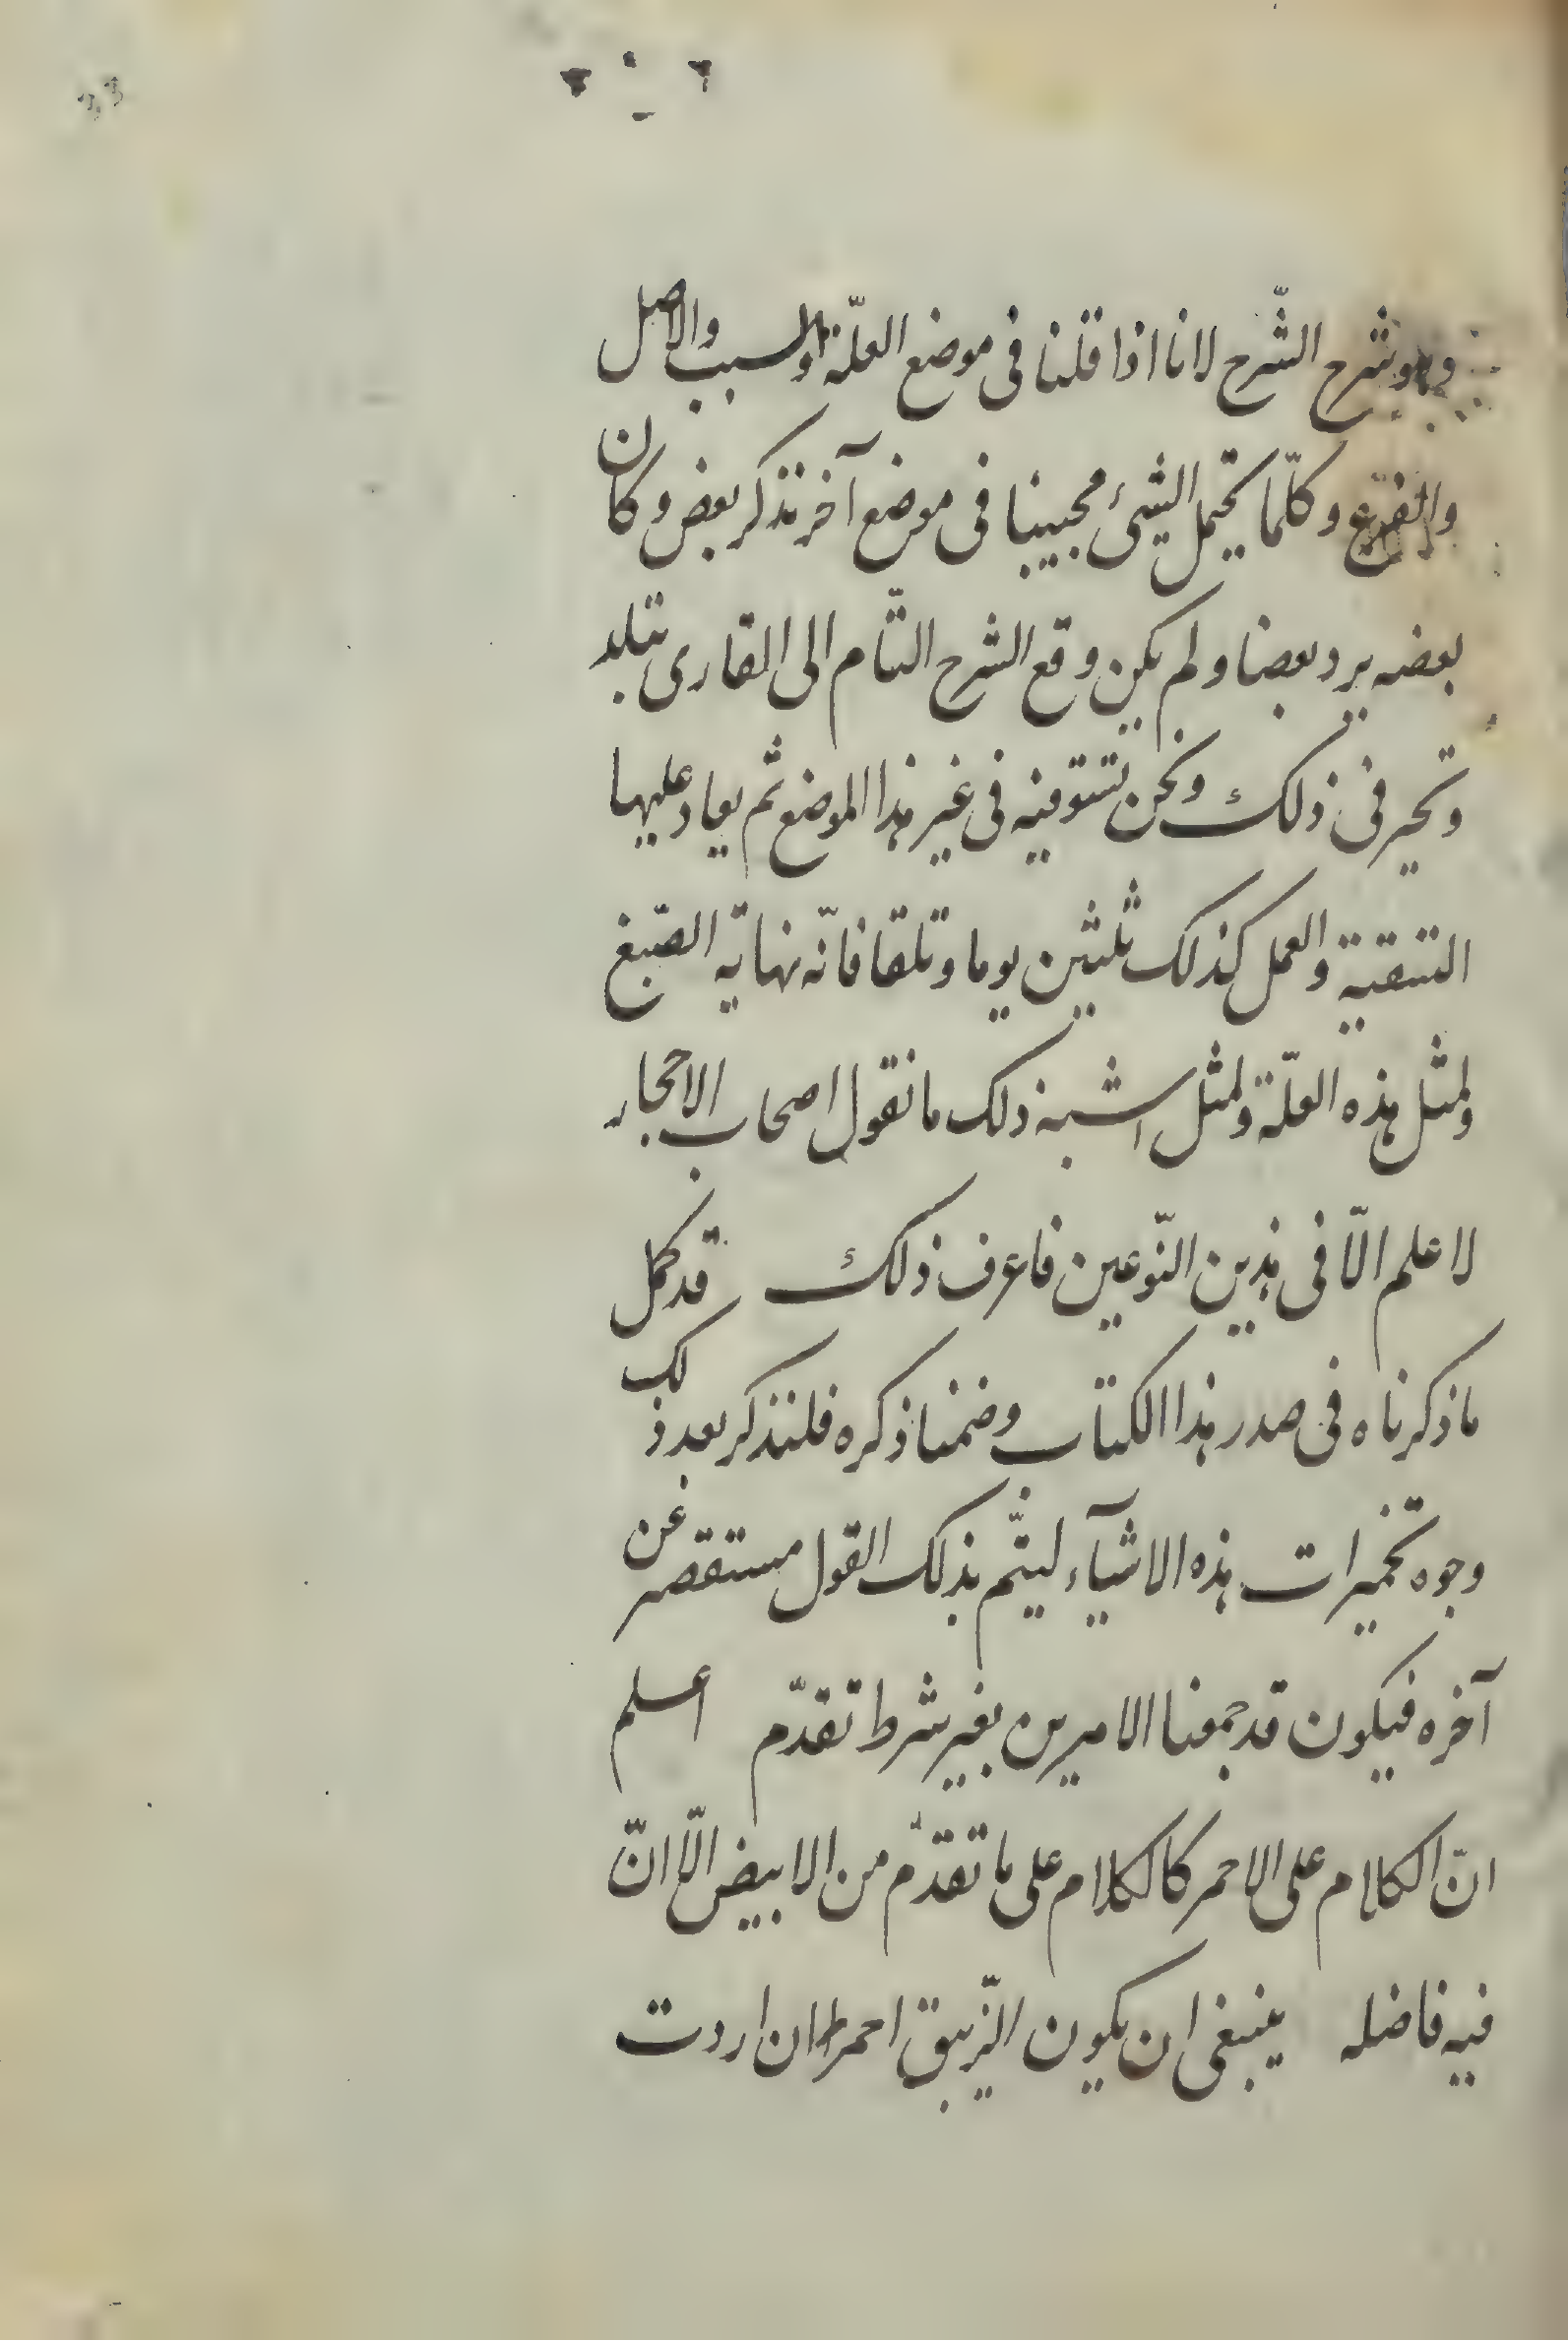 وهو شرح الشّرح لانا اذا قلنا فى موضع العلّة والسبب والاصل
والفرع وكلّما يحتمل الشيئ مجيبنا فى موضع آخر نذكر بعض وكان
بعضه يرد بعضا ولم يكن وقع الشرح التّام الى القارى تبلد
وتحير فى ذلك ونحن نستوفيه فى غير هذا الموضع ثم يعاد عليها
التنقية والعمل كذلك ثلثين يوما وتلقا فانّه نهاية الصّبغ
ولمثل هذه العلّة ولمثل اشبه ذلك ما نقول اصحاب الاحجار
لا علم الّا فى هذين النّوعين فاعرف ذلك قد كمل
ما ذكرناه فى صدر هذا الكتاب وضمنا ذكره فلنذكر بعد ذلك
وجوه تخميرات هذه الاشيآء ليتّم بذلك القول مستقصر عن
آخره فيكون قد جمعنا الامرين بغير شرط تقدّم اعلم
انّ الكلام على الاحمر كالكلام على ما تقدّم من الابيض الّا انّ
فيه فاضله ينبغى ان يكون الزّيبق احمر ان اردت